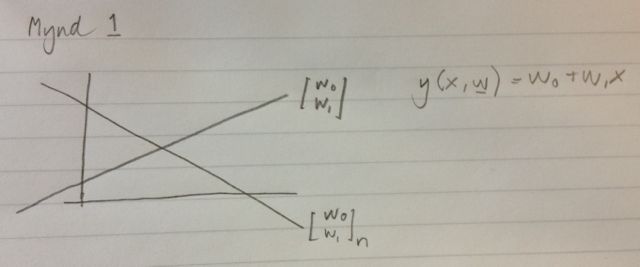 Mynd 1
[w₀ w₁]
y(x, w̲) = w₀ + w₁x
[w₀ w₁]ₙ